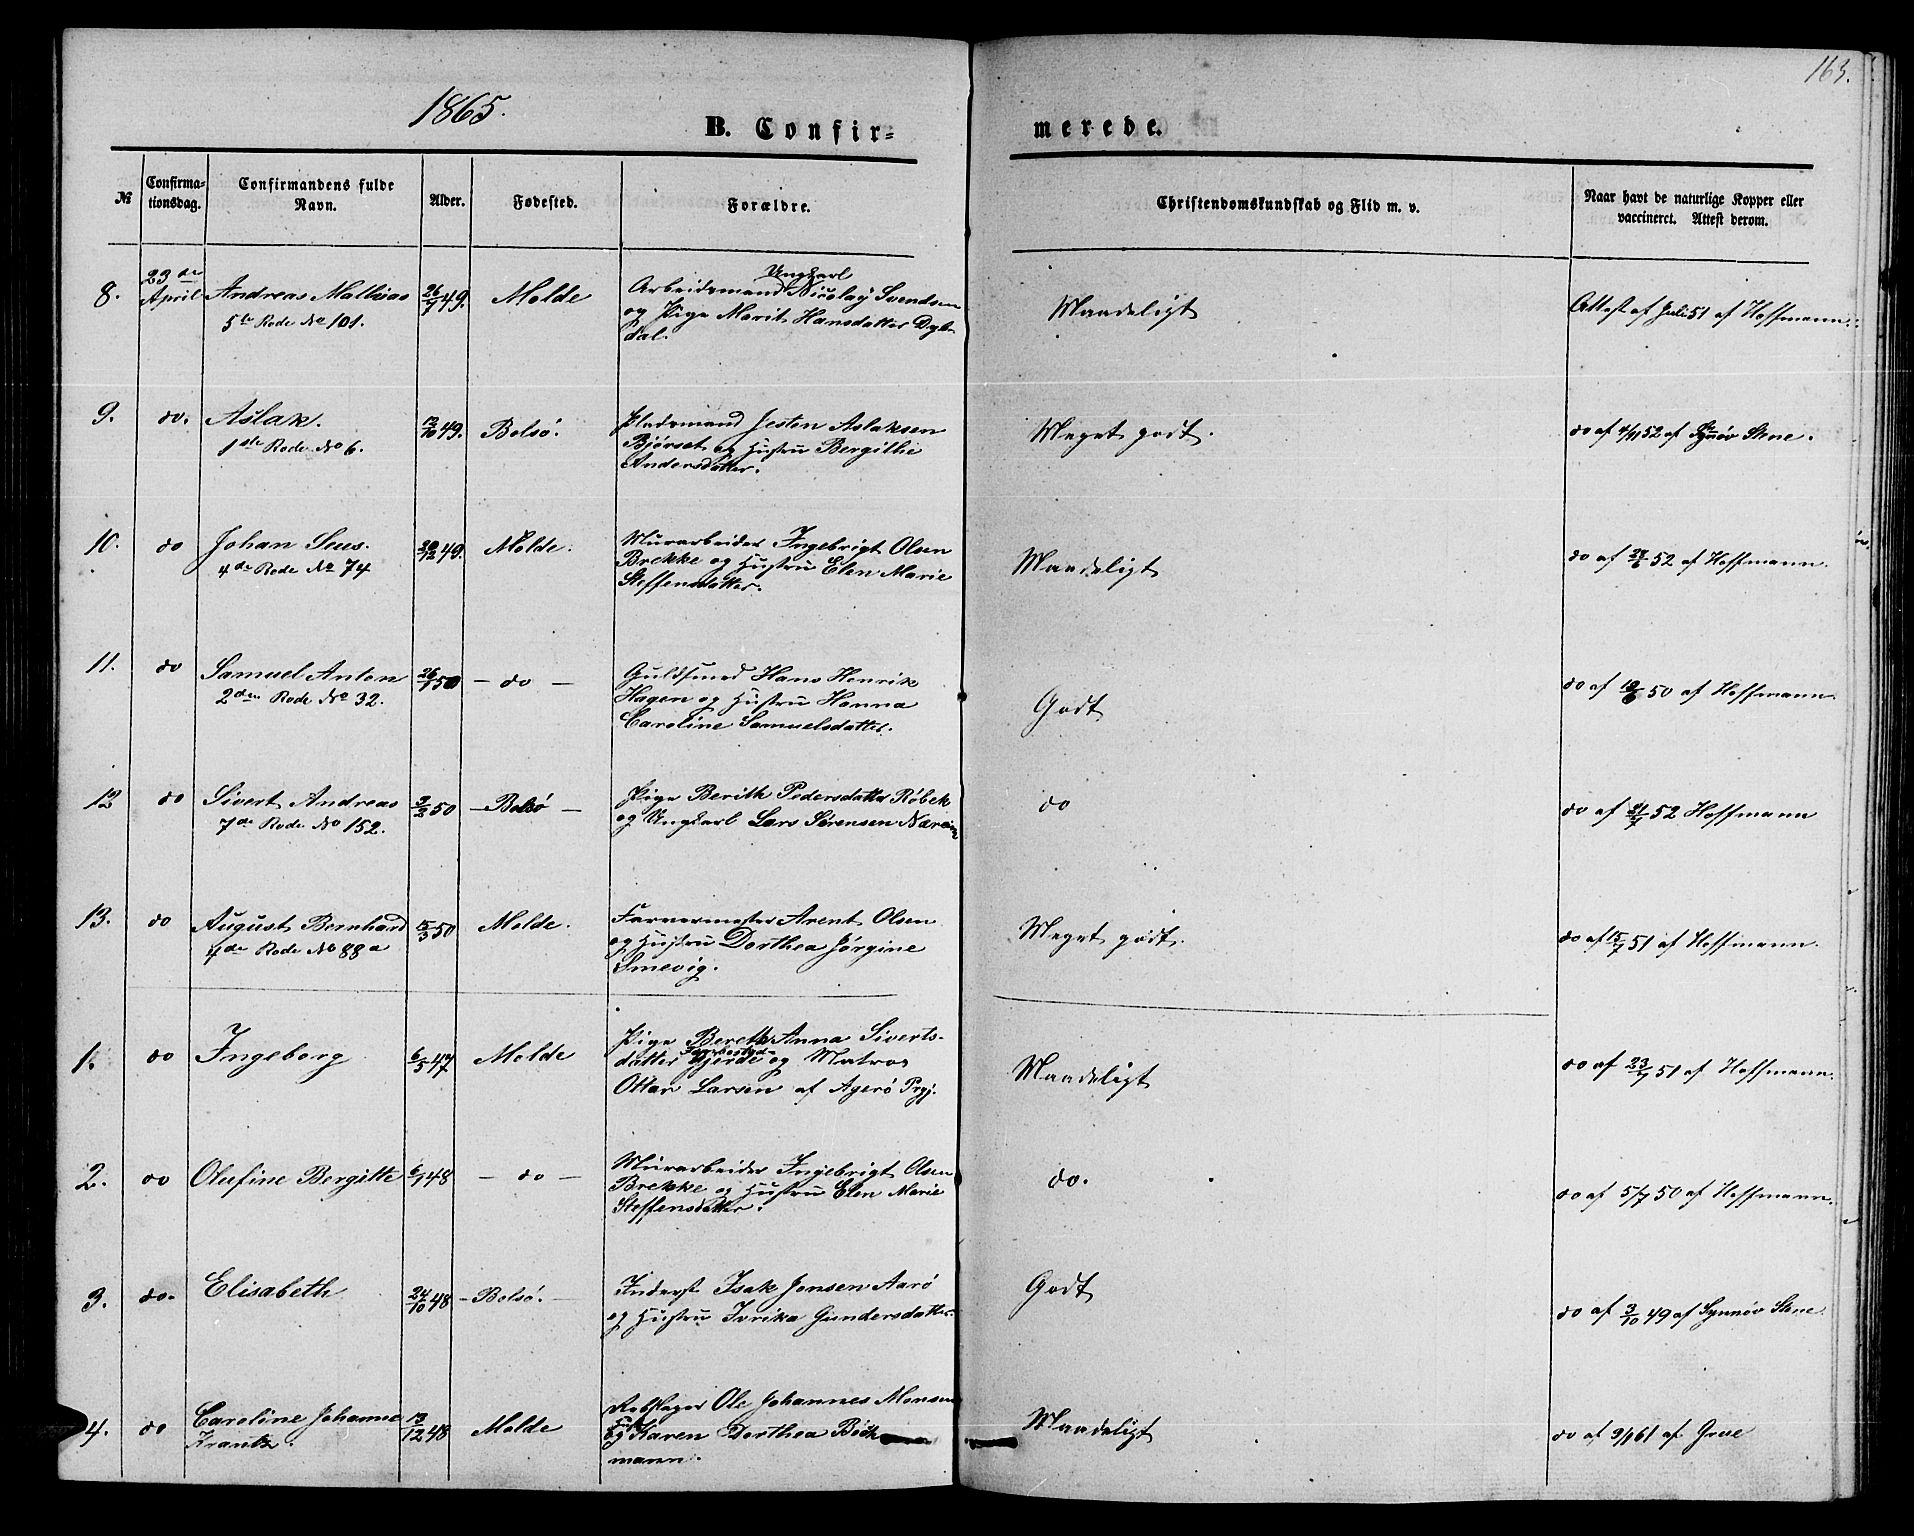 163.
1865.
B. Confir=
merede.
№
Confirma-
tionsdag.
Confirmandens fulde
Navn.
Alder.
Fødested.
Forældre.
Christendomskundskab og Flid m. v.
Naar havt de naturlige Kopper eller
vaccineret. Attest derom.
8.
23de
April
Andreas Mathias
5te Rode No 101.
26/7 49.
Molde
Ungkarl
Arbeidsmand Nicolay Svendsen
og Pige Marit Hansdatter Dyb-
dal.
Maadeligt
Attest af Juli 51 af Hoffmann.
9.
do.
Aslak.
1ste Rode No 6.
12/10 49.
Bolsø.
Pladsmand Jesten Aslaksen
Bjørset og Hustru Bergithe
Andersdatter.
Meget godt.
do af 4/11 52 af Synnøv Stene.
10.
do
Johan Seus.
4de Rode No 74
30/12 49.
Molde.
Murarbeider Ingebrigt Olsen
Brekke og Hustru Elen Marie
Steffensdatter.
Maadeligt
do af 24/6 52 af Hoffmann.
11.
do
Samuel Anton
2den Rode No 32.
26/1 50
- do -
Guldsmed Hans Henrik
Hagen og Hustru Hanna
Caroline Samuelsdatter.
Godt
do af 18/6 50 af Hoffmann
12
do
Sivert Andreas
7de Rode No 152.
3/2 50
- Bolsø -
Pige Berith Pedersdatter Røbek
og Ungkarl Lars Sørensen
do
do af 21/7 52 Hoffmann
13.
do
August Bernhard
4de Rode No 88 a
15/3 50
Molde.
Farvermester Arent Olsen
og Hustru Dorthea Jørgine
Smevig.
Meget godt.
do af 15/7 51 af Hoffmann.
1.
do
Ingeborg
6/5 47
Molde
Pige Bereth Anna Siverts-
datter Hjerde og Matros
Ottar Larsen af Agerø Prgj.
Maadeligt
do af 23/7 51 af Hoffmann.
2.
do
Olufine Bergitte
6/1 48
- do -
Murarbeider Ingebrigt Olsen
Brekke og Hustru Elen Marie
Steffensdatter.
do.
do af 5/7 50 af Hoffmann.
3.
do.
Elisabeth
24/10 48
- Bolsø. -
Inderst Isak Jonsen Aarø
og Hustru Ivrika Gundersdatter
Godt
do af 3/10 49 af Synnøv Stene.
4.
do
Caroline Johanne
Krantz.
13/12 48
Molde
Rebslager Ole Johannes Monsen
og Karen Dorthea Böch
mann.
Maadeligt
do af 9/1 61 af Grue